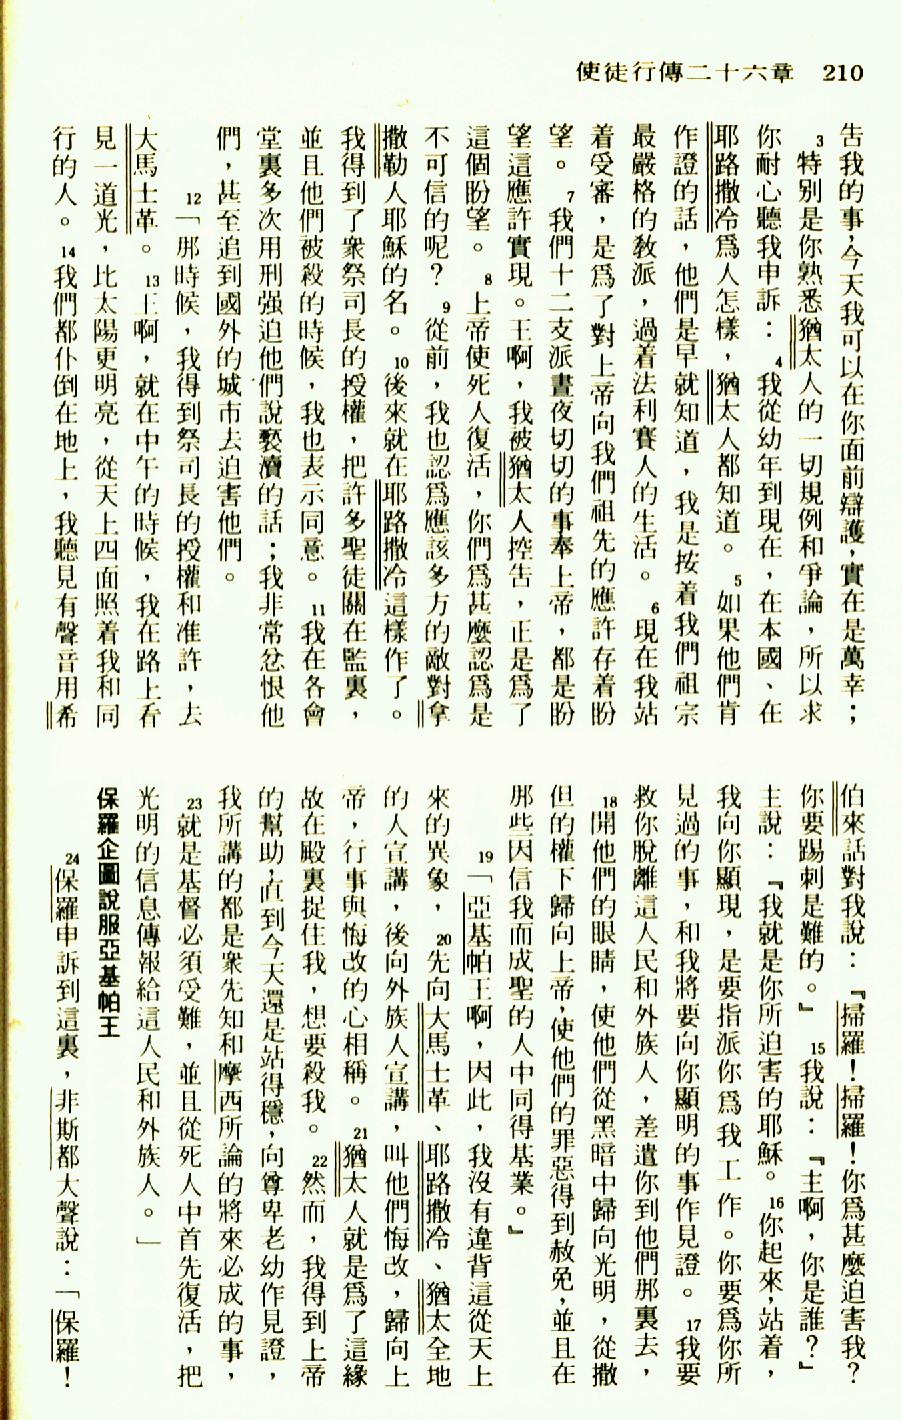 使徒行傳二十六章 210
告我的事，今天我可以在你面前辯護，實在是萬幸；
3 特別是你熟悉猶太人的一切規例和爭論，所以求
你耐心聽我申訴： 4 我從幼年到現在，在本國、在
耶路撒冷爲人怎樣，猶太人都知道。 5 如果他們肯
作證的話，他們是早就知道，我是按着我們祖宗
最嚴格的教派，過着法利賽人的生活。 6 現在我站
着受審，是爲了對上帝向我們祖先的應許存着盼
望。 7 我們十二支派晝夜切切的事奉上帝，都是盼
望這應許實現。王啊，我被猶太人控告，正是爲了
這個盼望。 8 上帝使死人復活，你們爲甚麼認爲是
不可信的呢？ 9 從前，我也認爲應該多方的敵對拿
撒勒人耶穌的名。 10 後來就在耶路撒冷這樣作了。
我得到了衆祭司長的授權，把許多聖徒關在監裏，
並且他們被殺的時候，我也表示同意。 11 我在各會
堂裏多次用刑强迫他們說褻瀆的話；我非常忿恨他
們，甚至追到國外的城市去迫害他們。
12 「那時候，我得到祭司長的授權和准許，去
大馬士革。 13 王啊，就在中午的時候，我在路上看
見一道光，比太陽更明亮，從天上四面照着我和同
行的人。 14 我們都仆倒在地上，我聽見有聲音用希
伯來話對我說：『掃羅！掃羅！你爲甚麼迫害我？
你要踢刺是難的。』 15 我說：『主啊，你是誰？』
主說：『我就是你所迫害的耶穌。 16 你起來，站着，
我向你顯現，是要指派你爲我工作。你要爲你所
見過的事，和我將要向你顯明的事作見證。 17 我要
救你脫離這人民和外族人，差遣你到他們那裏去，
18 開他們的眼睛，使他們從黑暗中歸向光明，從撒
但的權下歸向上帝，使他們的罪惡得到赦免，並且在
那些因信我而成聖的人中同得基業。』
19 「亞基帕王啊，因此，我沒有違背這從天上
來的異象， 20 先向大馬士革、耶路撒冷、猶太全地
的人宣講，後向外族人宣講，叫他們悔改，歸向上
帝，行事與悔改的心相稱。 21 猶太人就是爲了這緣
故在殿裏捉住我，想要殺我。 22 然而，我得到上帝
的幫助，直到今天還是站得穩，向尊卑老幼作見證，
我所講的都是衆先知和摩西所論的將來必成的事，
23 就是基督必須受難，並且從死人中首先復活，把
光明的信息傳報給這人民和外族人。」
保羅企圖說服亞基帕王
24 保羅申訴到這裏，非斯都大聲說：「保羅！